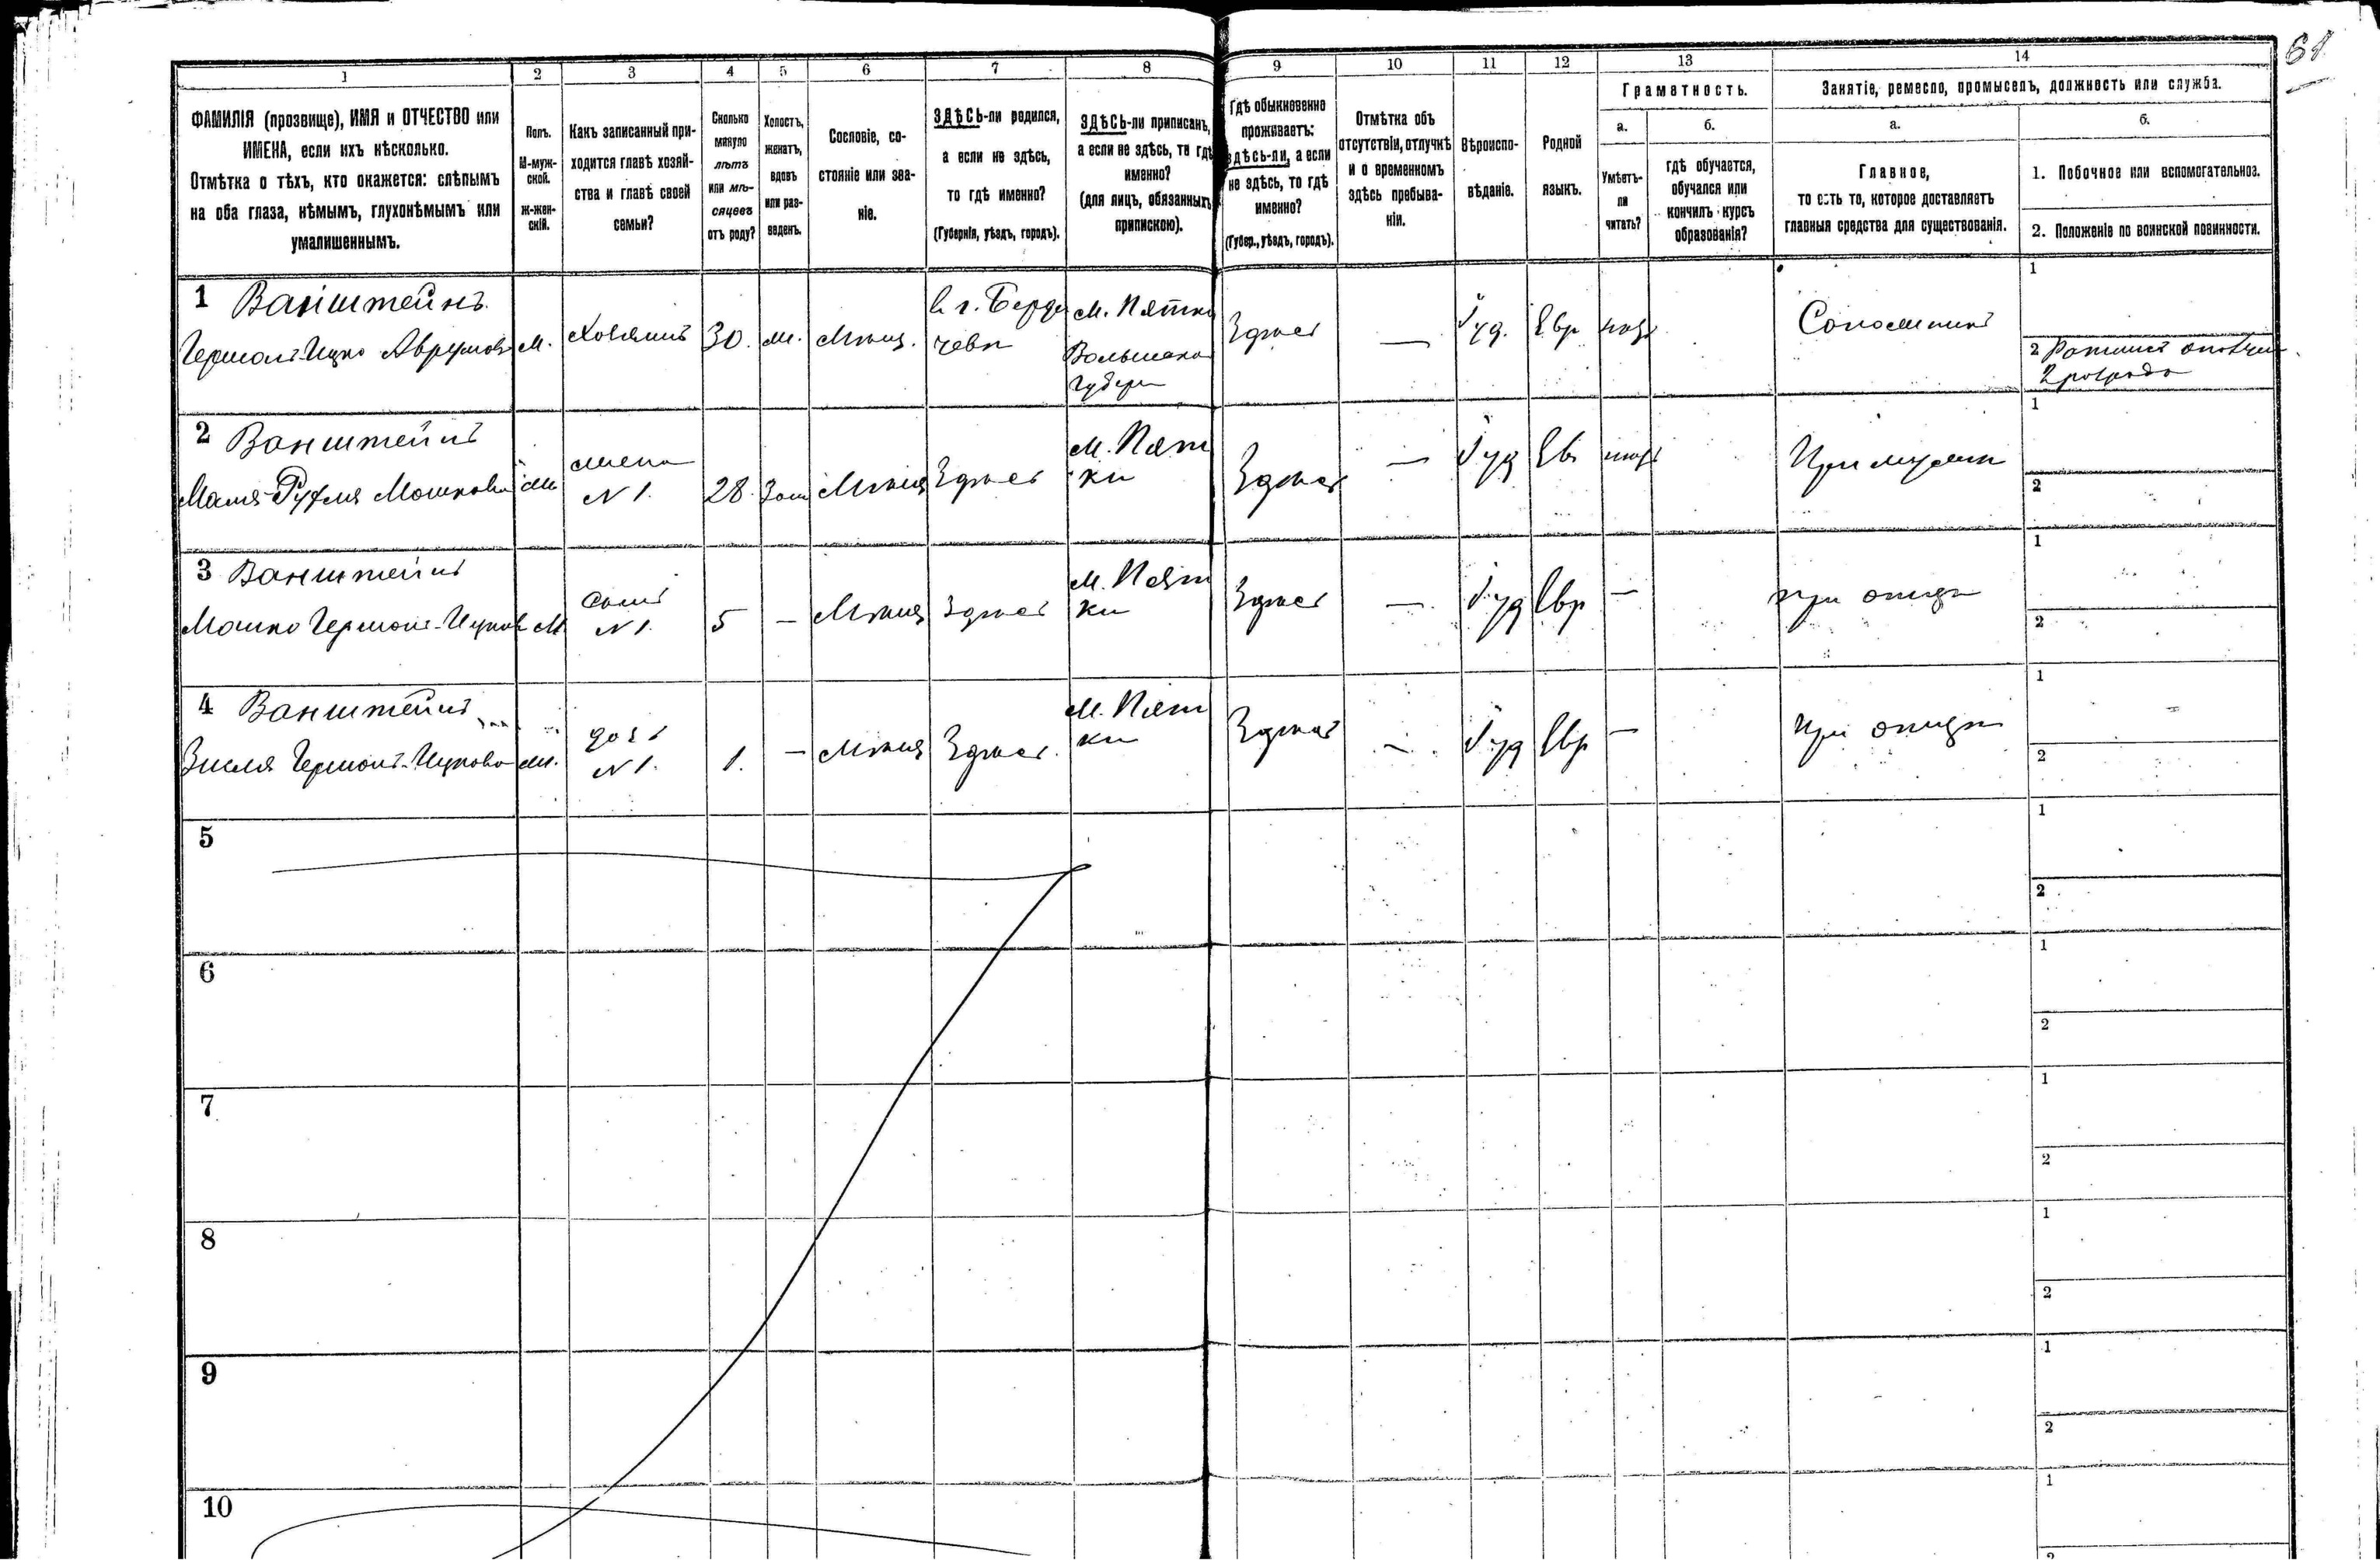 61
1 2 3 4 5 6 7 8 9 10 11 12 13 14
ФАМИЛІЯ (прозвище), ИМЯ и ОТЧЕСТВО или
ИМЕНА, если ихъ нѣсколько.
Отмѣтка о тѣхъ, кто окажется: слѣпымъ
на оба глаза, нѣмымъ, глухонѣмымъ или
умалишеннымъ.
Полъ.
М-муж-
ской.
Ж-жен-
скій.
Какъ записанный при-
ходится главѣ хозяй-
ства и главѣ своей
семьи?
Сколько
минуло
лѣтъ
или мѣ-
сяцевъ
отъ роду?
Холостъ,
женатъ,
вдовъ
или раз-
веденъ.
Сословіе, со-
стояніе или зва-
ніе.
ЗДѢСЬ-ли родился,
а если не здѣсь,
то гдѣ именно?
(Губернія, уѣздъ, городъ).
ЗДѢСЬ-ли приписанъ,
а если не здѣсь, то гдѣ
именно?
(для лицъ, обязанныхъ
припискою).
Гдѣ обыкновенно
проживаетъ:
здѣсь-ли, а если
не здѣсь, то гдѣ
именно?
(Губер., уѣздъ, городъ).
Отмѣтка объ
отсутствіи, отлучкѣ
и о временномъ
здѣсь пребыва-
ніи.
Вѣроиспо-
вѣданіе.
Родной
языкъ.
Граматность.
а.
Умѣетъ-
ли
читать?
б.
гдѣ обучается,
обучался или
кончилъ курсъ
образованія?
Занятіе, ремесло, промыселъ, должность или служба.
а.
Главное,
то есть то, которое доставляетъ
главныя средства для существованія.
б.
1. Побочное или вспомогательное.
2. Положеніе по воинской повинности.
1 Ванштейнъ
Ицко Аврумов
М.
Хозяинъ
30.
Мѣщ.
в г. Берди
чевѣ
м. Пятки
Волынской
Губерн
Здѣсь
—
Іуд.
Евр
1
2 Ратникъ ополчен
2 розряда
2 Ванштейнъ
Мошкова
жена
N 1.
28.
Зам
Мѣщ
Здѣсь
м. Пят
ки
Здѣсь
—
Іуд
Ев
При мужѣ
1
2
3 Ванштейнъ
Мошко
М
сынъ
N 1.
5
—
Мѣщ
Здѣсь
м. Пят
ки
Здѣсь
—
Іуд
Евр
—
при отцѣ
1
2
4 Ванштейнъ
дочь
N 1.
1.
—
Мѣщ
Здѣсь.
м. Пят
ки
Здѣсь
—
Іуд
Евр
—
при отцѣ
1
2
5
1
2
6
1
2
7
1
2
8
1
2
9
1
2
10
1
2